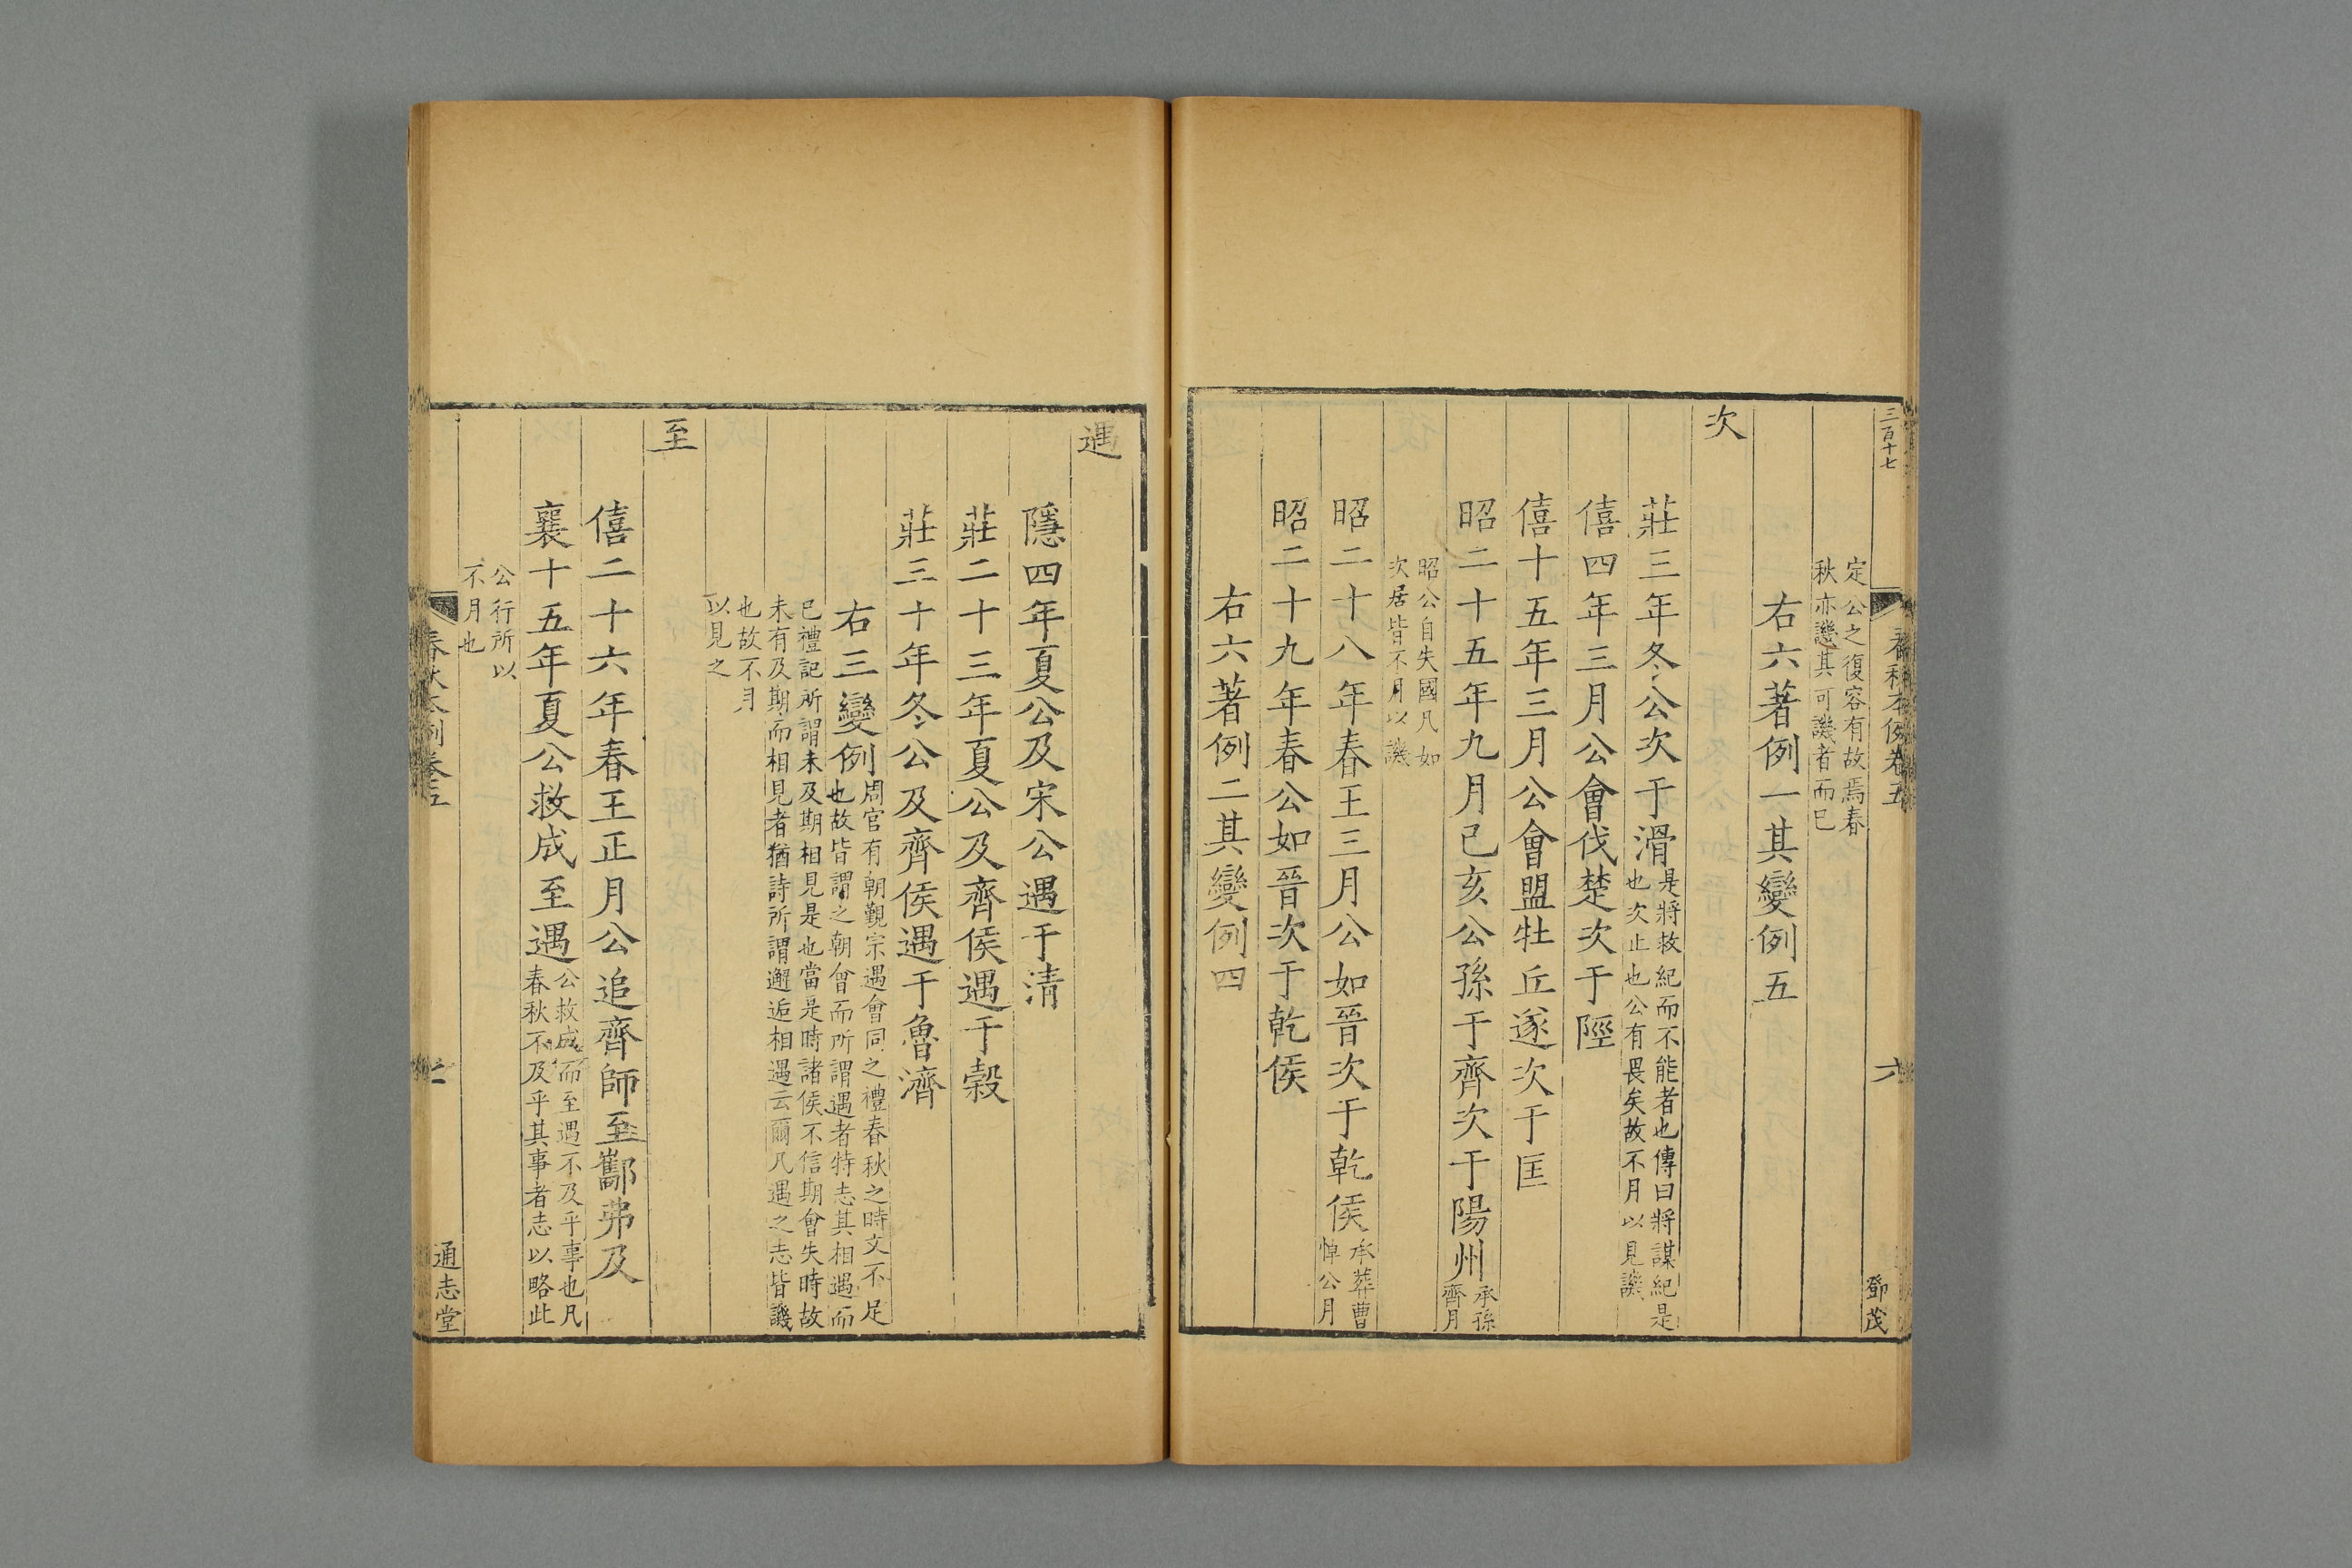 三百十七
春秋本例卷五
六
鄧茂
定公之復容有故焉春
秋亦譏其可譏者而已
右六著例一其變例五
次
莊三年冬公次于滑
是將救紀而不能者也傳曰將謀紀是
也次止也公有畏矣故不月以見譏
僖四年三月公會伐楚次于陘
僖十五年三月公會盟牡丘遂次于匡
昭二十五年九月己亥公孫于齊次于陽州
承孫
齊月
昭公自失國凡如
次居皆不月以譏
昭二十八年春王三月公如晉次于乾侯
承葬曹
悼公月
昭二十九年春公如晉次于乾侯
右六著例二其變例四
遇
隱四年夏公及宋公遇于清
莊二十三年夏公及齊侯遇于穀
莊三十年冬公及齊侯遇于魯濟
右三變例
周官有朝覲宗遇會同之禮春秋之時文不足
也故皆謂之朝會而所謂遇者特志其相遇而
已禮記所謂未及期相見是也當是時諸侯不信期會失時故
未有及期而相見者猶詩所謂邂逅相遇云爾凡遇之志皆譏
也故不月
以見之
至
僖二十六年春王正月公追齊師至酅弗及
襄十五年夏公救成至遇
公救成而至遇不及乎事也凡
春秋不及乎其事者志以略此
公行所以
不月也
春秋本例卷五
通志堂